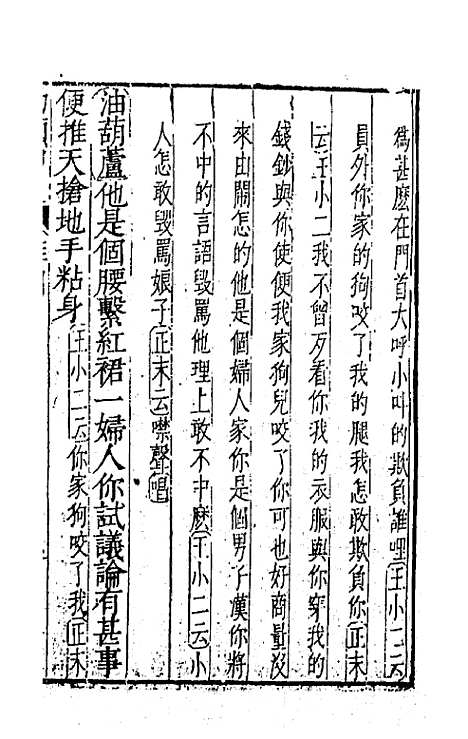 爲甚麽在門首大呼小叫的欺負誰哩王小二云
員外你家的狗咬了我的腿我怎敢欺負你正末
云王小二我不曾歹看你我的衣服與你穿我的
錢鈔與你使便我家狗兒咬了你可也好商量没
來由閙怎的他是個婦人家你是個男子漢你將
不中的言語毀罵他理上敢不中麽王小二云小
人怎敢毀罵娘子正末云噤聲唱
油葫蘆他是個腰繫紅裙一婦人你試議論有甚事
便推天搶地手粘身王小二云你家狗咬了我正末